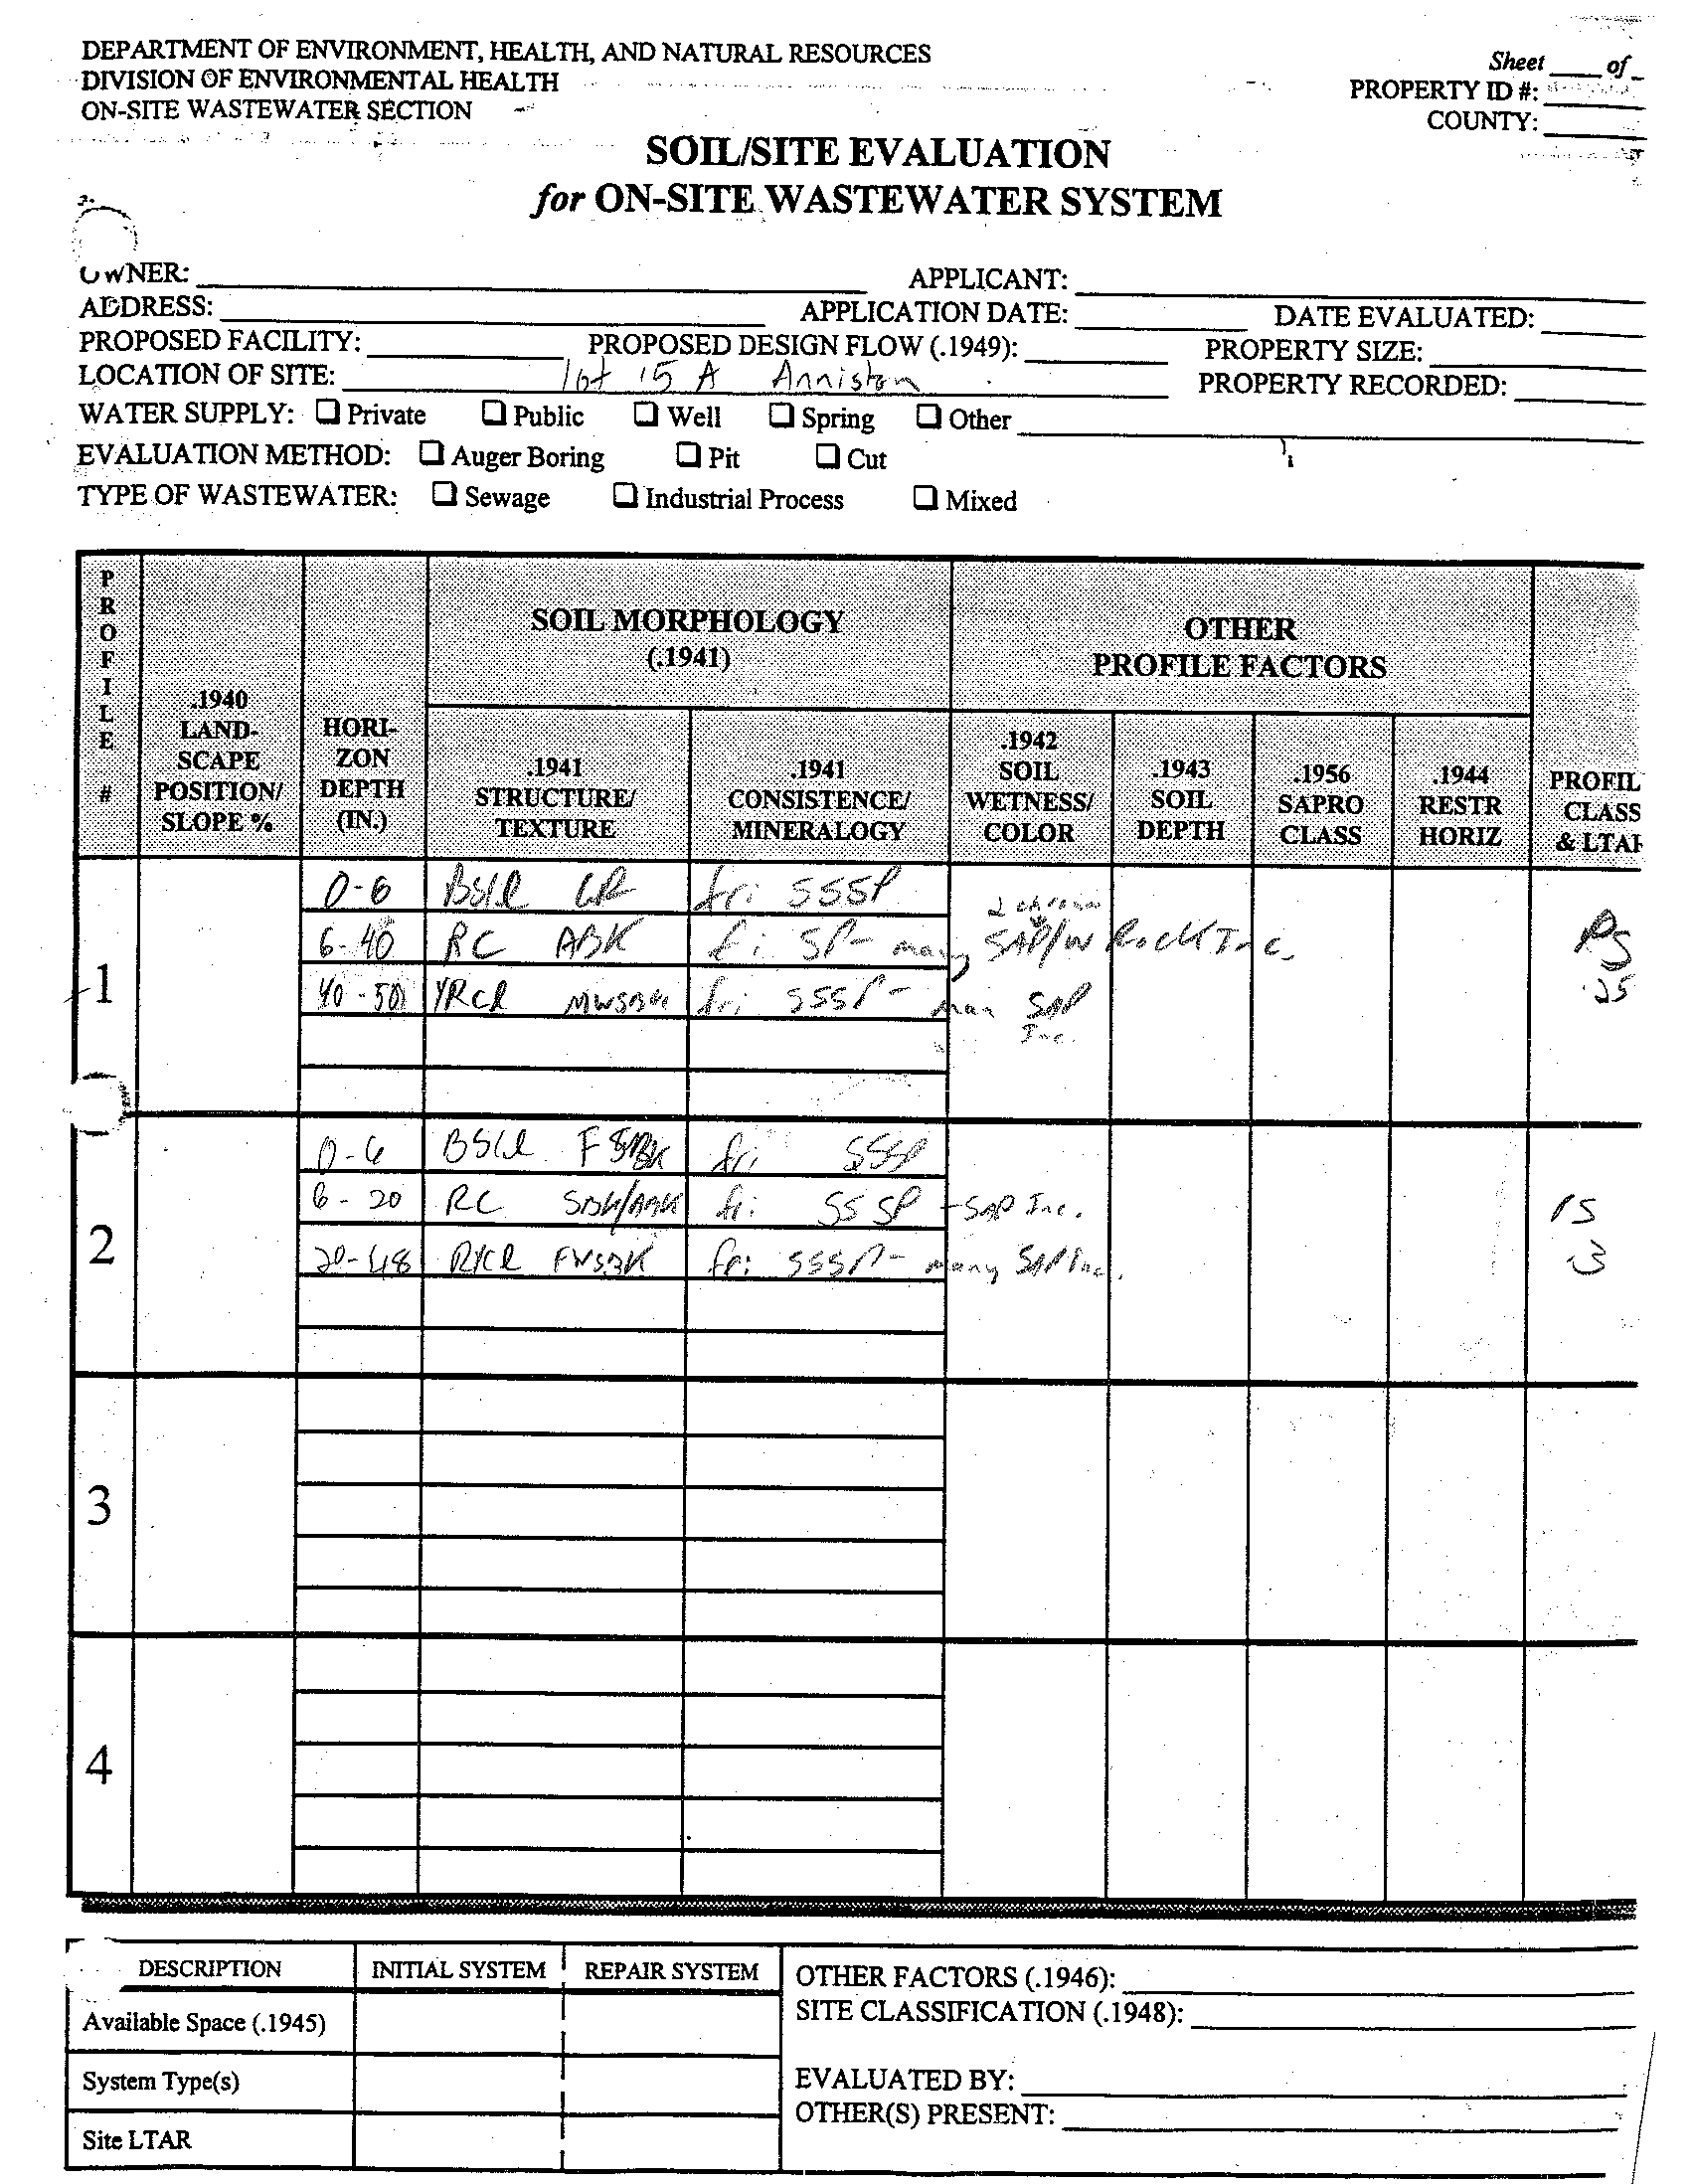 DEPARTMENT OF ENVIRONMENT, HEALTH, AND NATURAL RESOURCES
DIVISION OF ENVIRONMENTAL HEALTH
ON-SITE WASTEWATER SECTION
Sheet ____ of _
PROPERTY ID #:
COUNTY:
SOIL/SITE EVALUATION
for ON-SITE WASTEWATER SYSTEM
OWNER: APPLICANT:
ADDRESS: APPLICATION DATE: DATE EVALUATED:
PROPOSED FACILITY: PROPOSED DESIGN FLOW (.1949): PROPERTY SIZE:
LOCATION OF SITE: lot 15 A Anniston PROPERTY RECORDED:
WATER SUPPLY: ❑ Private ❑ Public ❑ Well ❑ Spring ❑ Other
EVALUATION METHOD: ❑ Auger Boring ❑ Pit ❑ Cut
TYPE OF WASTEWATER: ❑ Sewage ❑ Industrial Process ❑ Mixed
PROFILE #
.1940 LAND-SCAPE POSITION/ SLOPE %
HORI-ZON DEPTH (IN.)
SOIL MORPHOLOGY (.1941)
.1941 STRUCTURE/ TEXTURE
.1941 CONSISTENCE/ MINERALOGY
OTHER PROFILE FACTORS
.1942 SOIL WETNESS/ COLOR
.1943 SOIL DEPTH
.1956 SAPRO CLASS
.1944 RESTR HORIZ
PROFIL CLASS & LTAR
1
0-6 BSCL GR fri SSSP
2 chroma
6-40 RC ABK fi SP- many SAP/W Rock Inc.
40-50 YRCL fri SSSP- man SAP Inc.
PS
.25
2
0-6 BSCL FSBK fri SSSP
6-20 RC SBK/ABK fi: SSSP -SAP Inc.
20-48 RYCL FWSBK fri SSSP- many SAP Inc.
PS
.3
3
4
DESCRIPTION INITIAL SYSTEM REPAIR SYSTEM
Available Space (.1945)
System Type(s)
Site LTAR
OTHER FACTORS (.1946):
SITE CLASSIFICATION (.1948):
EVALUATED BY:
OTHER(S) PRESENT: